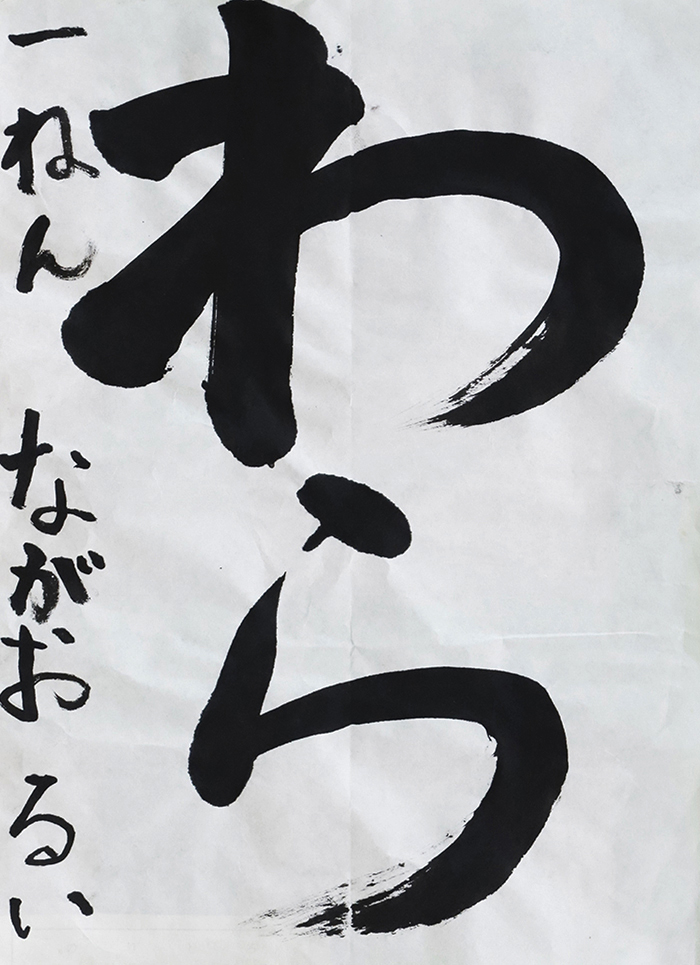 わら
一ねん ながお るい